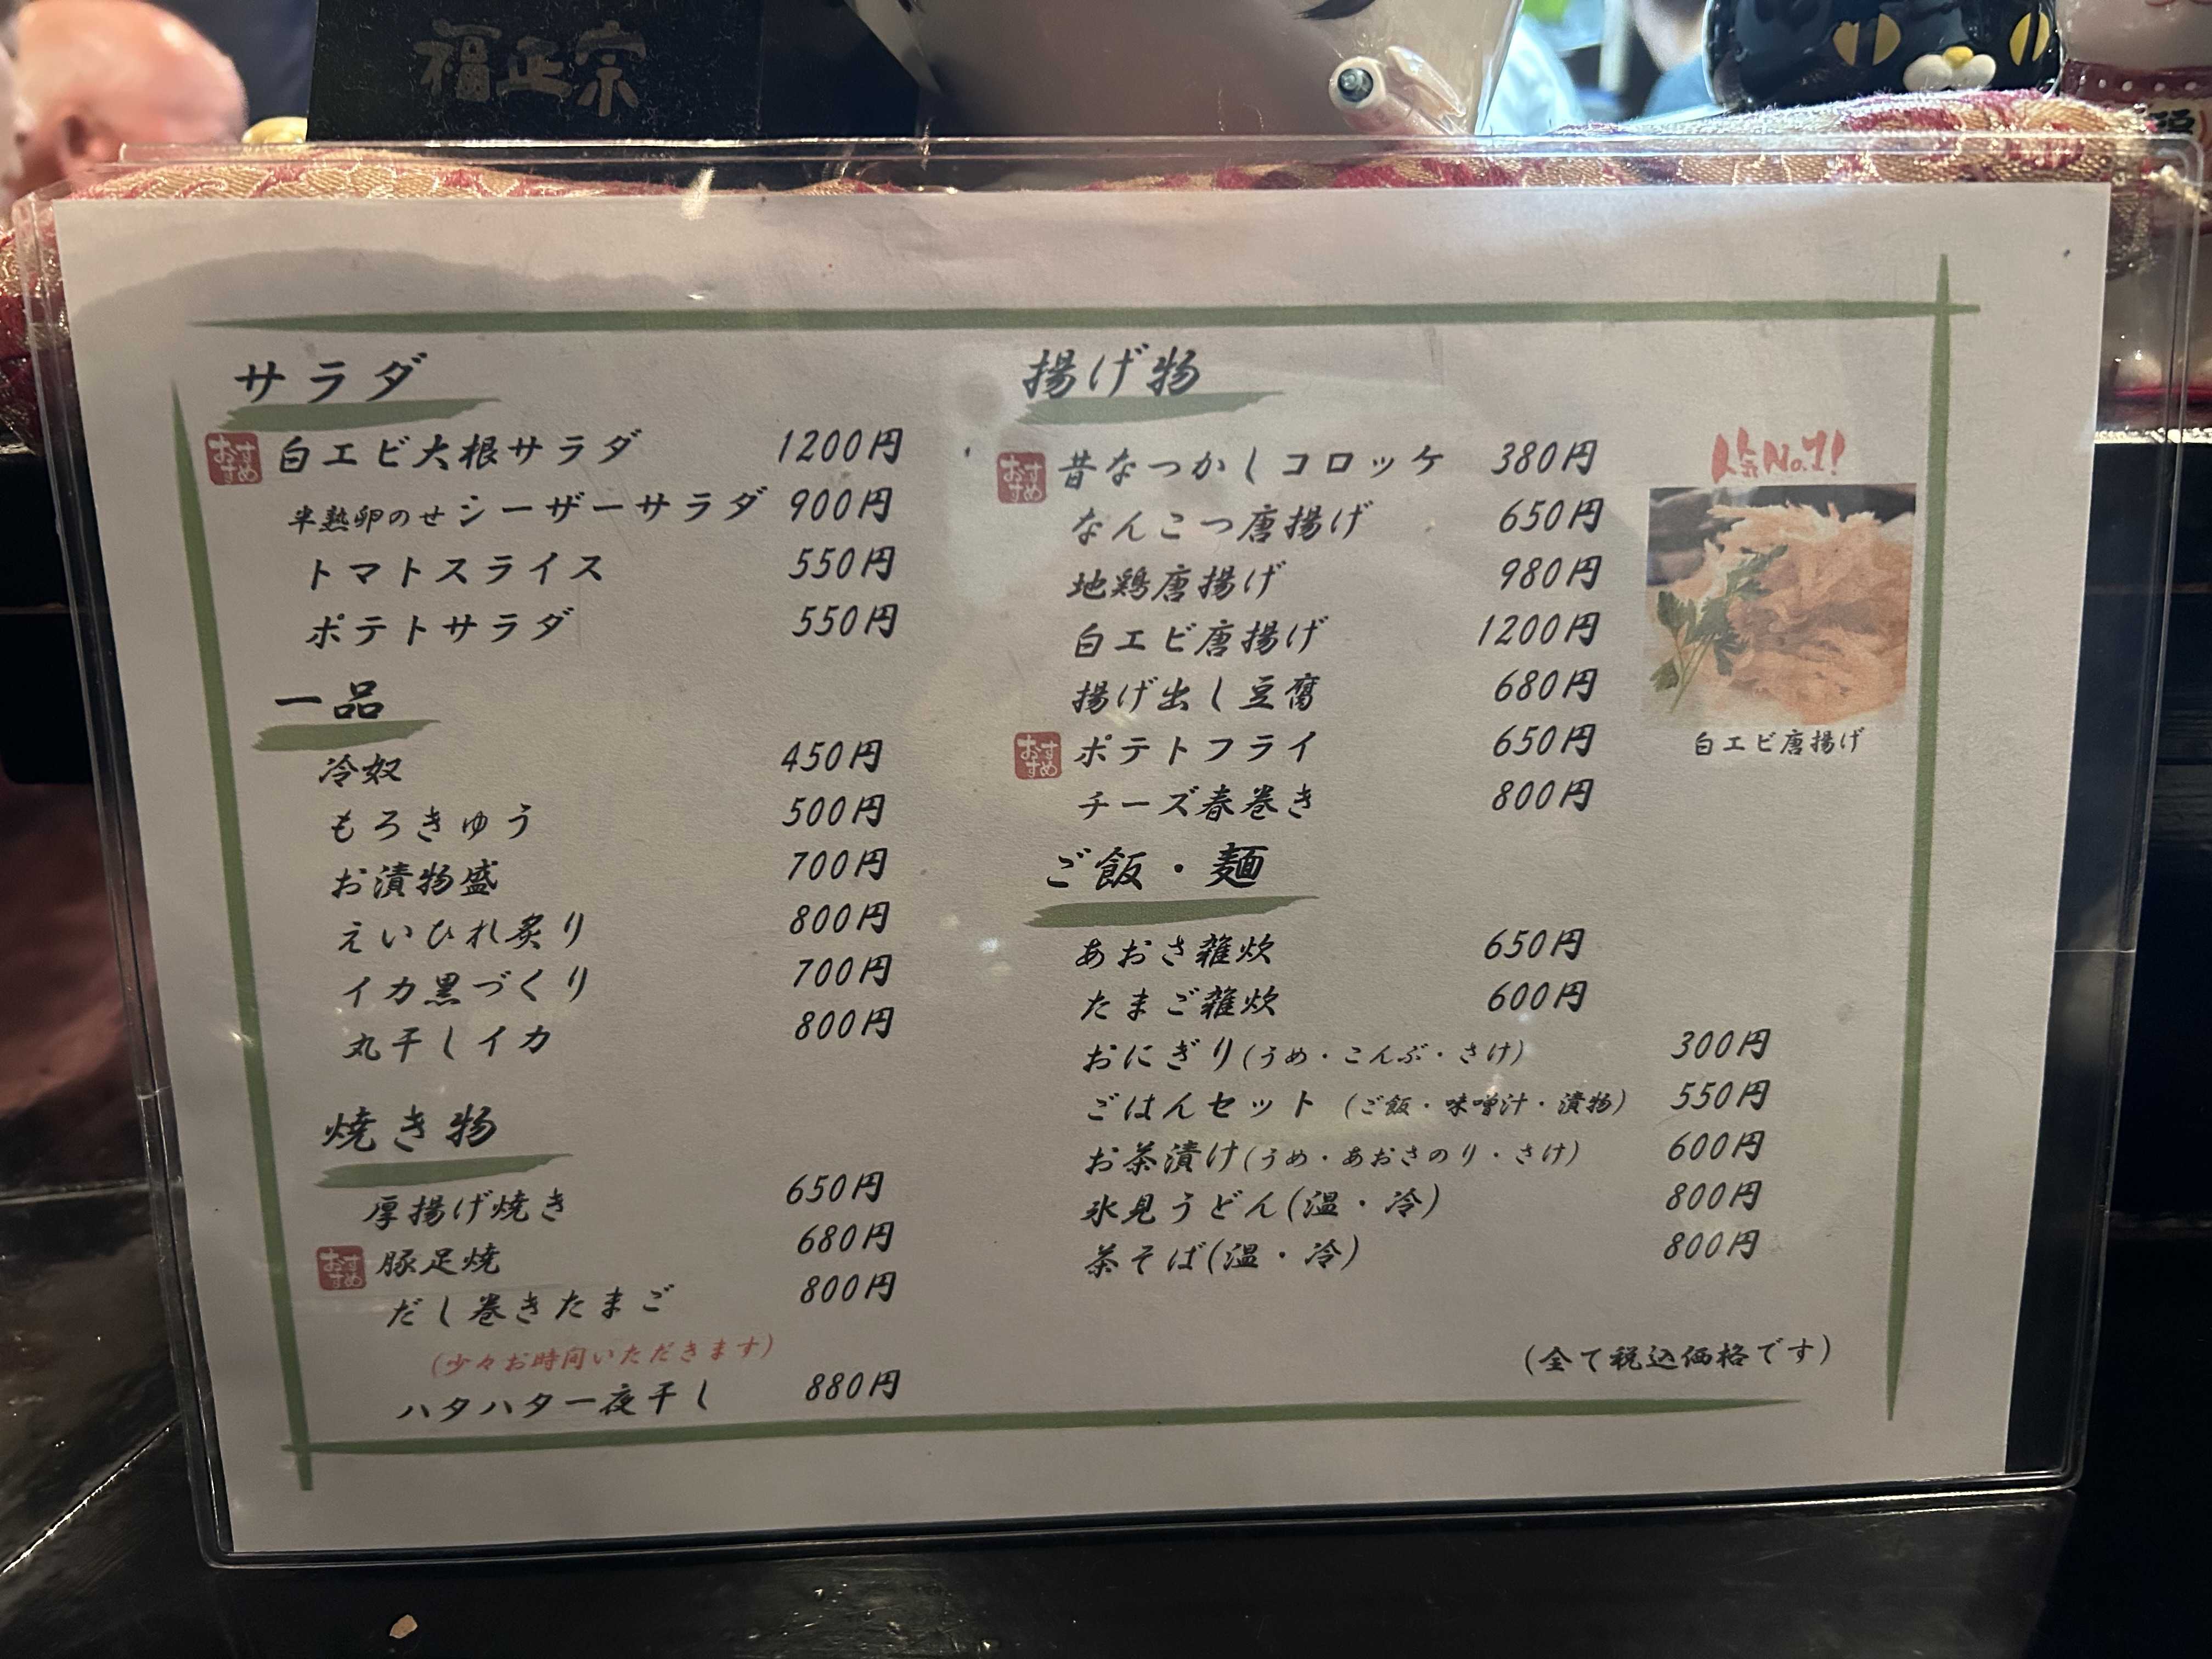 福正宗
サラダ
おすすめ 白エビ大根サラダ 1200円
半熟卵のせシーザーサラダ 900円
トマトスライス 550円
ポテトサラダ 550円
一品
冷奴 450円
もろきゅう 500円
お漬物盛 700円
えいひれ炙り 800円
イカ黒づくり 700円
丸干しイカ 800円
焼き物
厚揚げ焼き 650円
おすすめ 豚足焼 680円
だし巻きたまご 800円
(少々お時間いただきます)
ハタハタ一夜干し 880円
揚げ物
おすすめ 昔なつかしコロッケ 380円
なんこつ唐揚げ 650円
地鶏唐揚げ 980円
白エビ唐揚げ 1200円
揚げ出し豆腐 680円
おすすめ ポテトフライ 650円
チーズ春巻き 800円
人気No.1!
白エビ唐揚げ
ご飯・麺
あおさ雑炊 650円
たまご雑炊 600円
おにぎり(うめ・こんぶ・さけ) 300円
ごはんセット (ご飯・味噌汁・漬物) 550円
お茶漬け(うめ・あおさのり・さけ) 600円
氷見うどん(温・冷) 800円
茶そば(温・冷) 800円
(全て税込価格です)